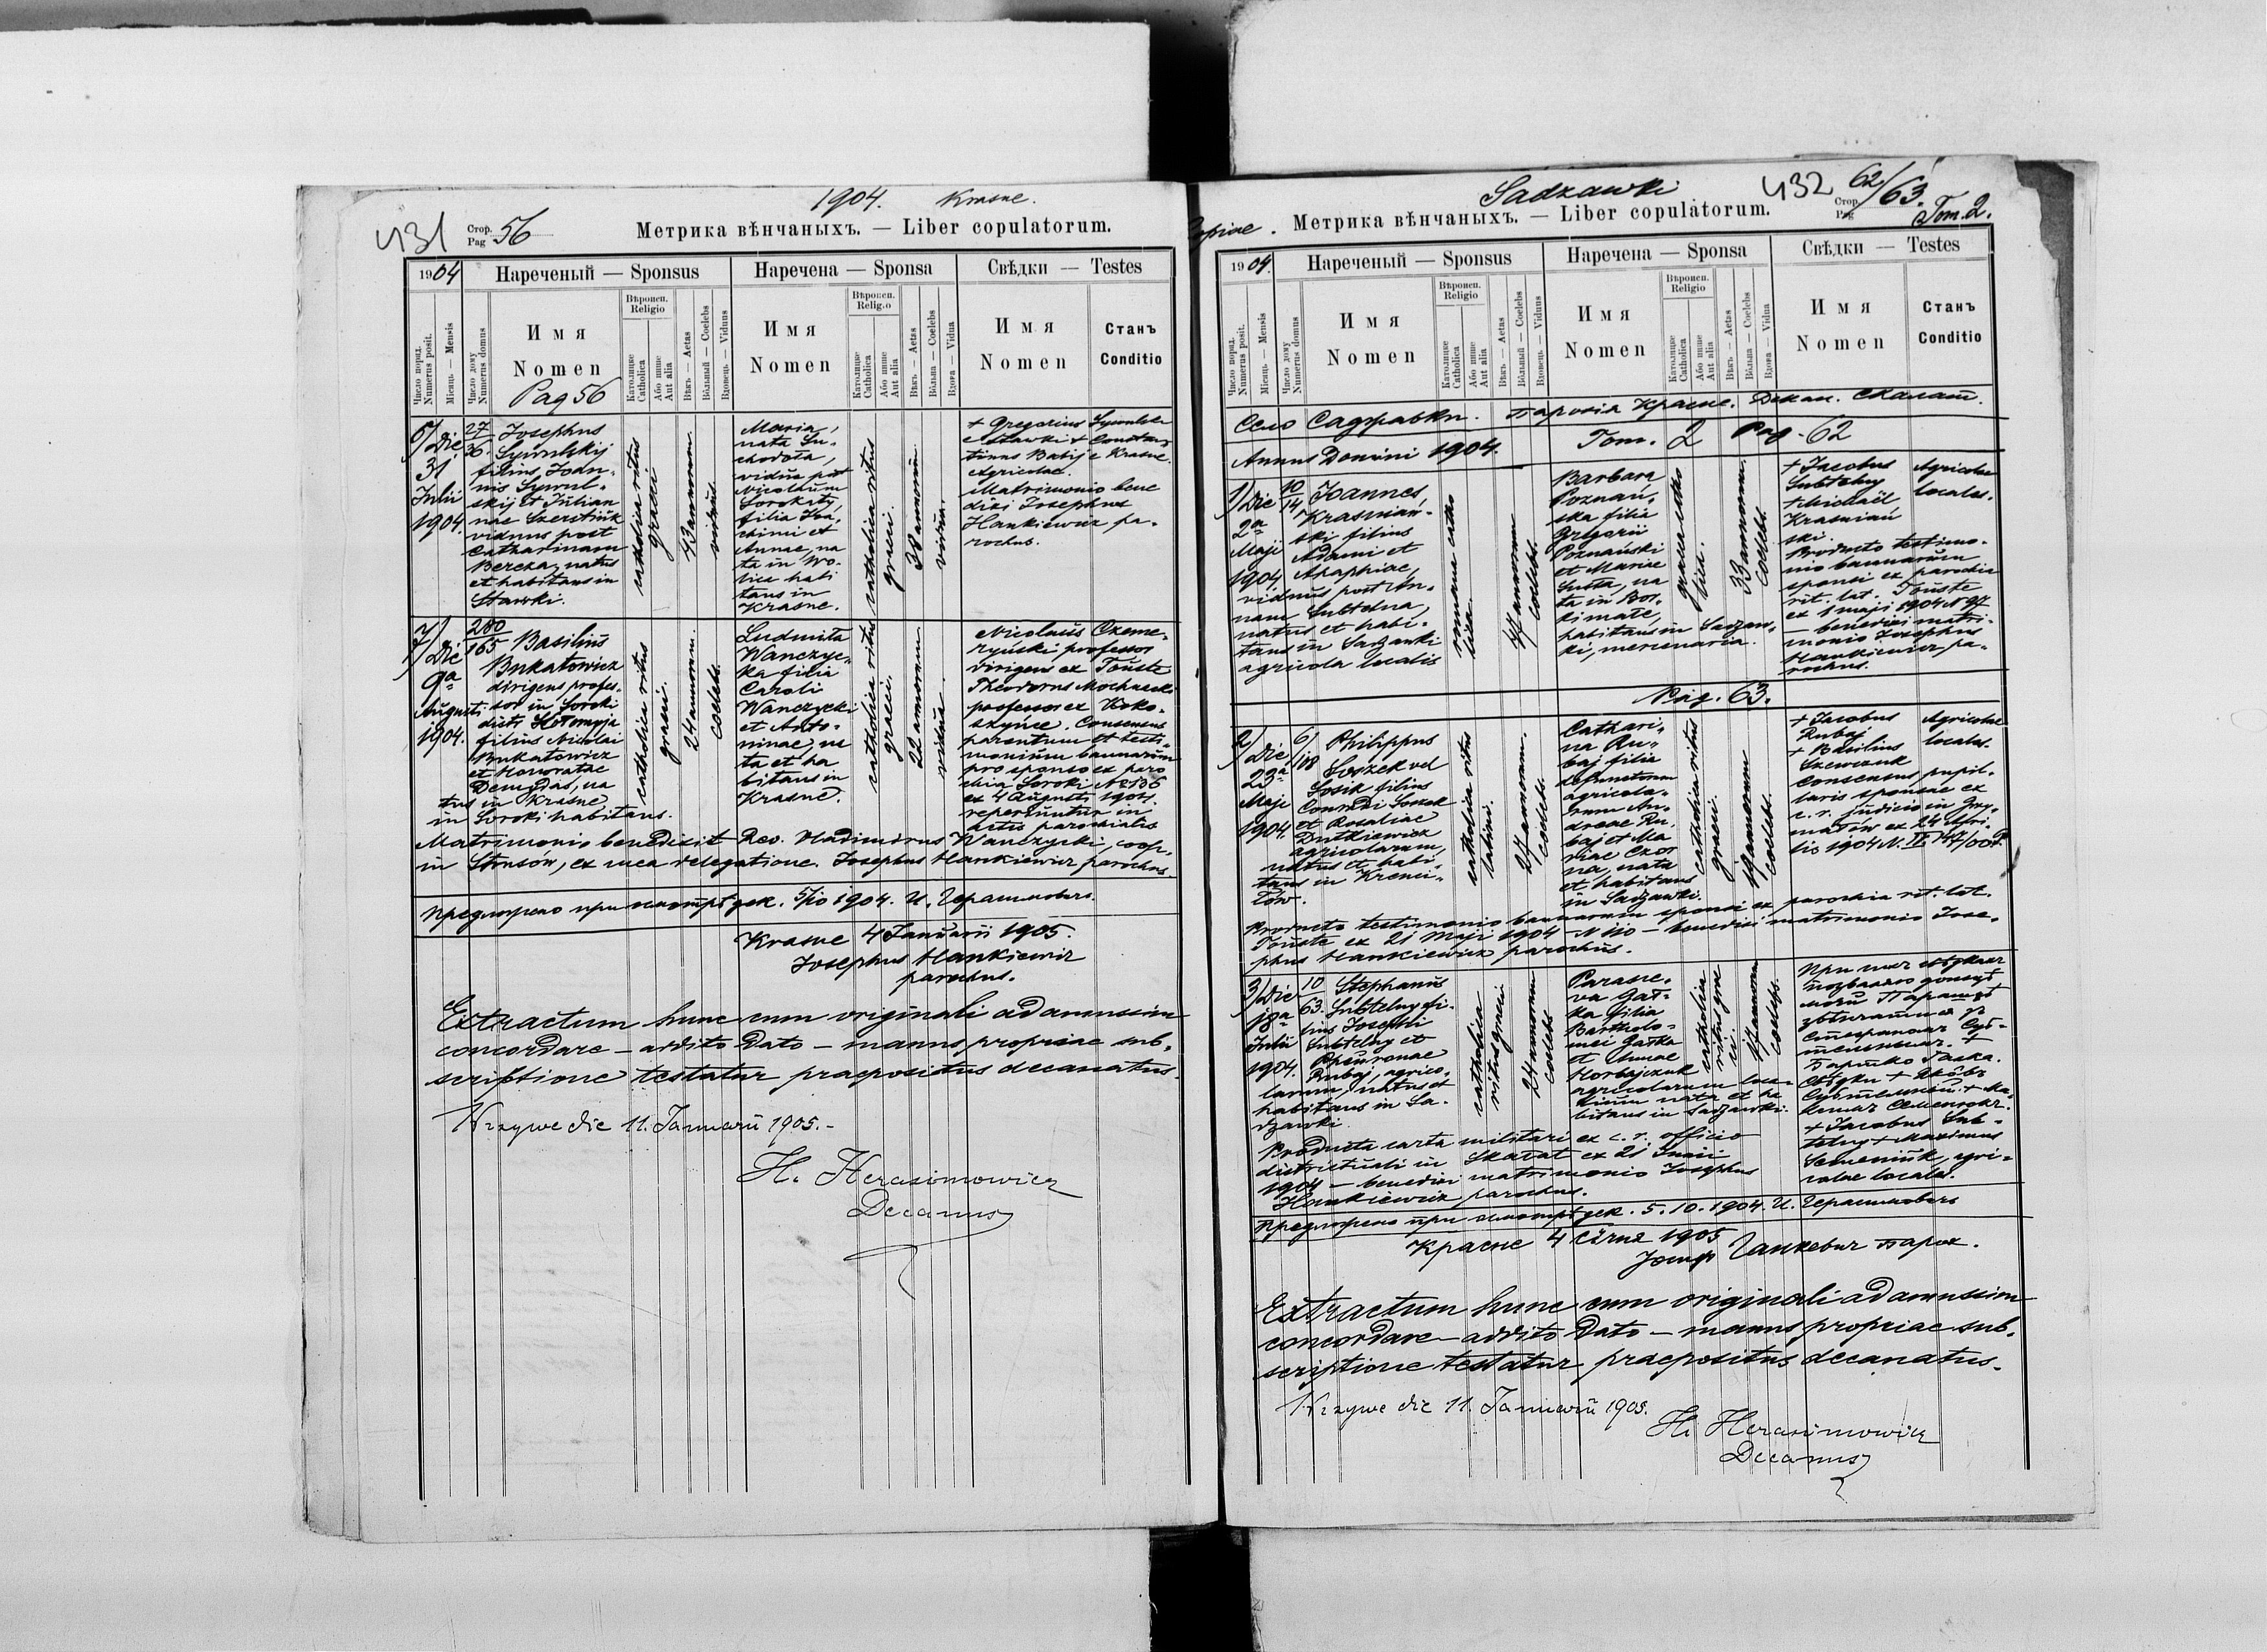 1904. Krasne.
431 Стор. Pag 56
Метрика вѣнчаныхъ. — Liber copulatorum.
1904
Нареченый — Sponsus
Наречена — Sponsa
Свѣдки — Testes
Число поряд. Numerus posit.
Місяць — Mensis
Число дому Numerus domus
Имя
Nomen
Pag 56
Вѣроисп. Religio
Католицке Catholica
Або инше Aut alia
Вѣкъ — Aetas
Вольный — Coelebs
Вдовець — Viduus
Имя
Nomen
Вѣроисп. Religio
Католицка Catholica
Або инше Aut alia
Вѣкъ — Aetas
Вольна — Coelebs
Вдова — Vidua
Имя
Nomen
Станъ
Conditio
6/ Die
31
Julii
1904.
27
36.
Josephus
Sywulskij
filius Joan-
nis Sywul-
skij et Julian
nae Szerstiuk
viduus post
Catharinam
Bereza, natus
et habitans in
Stawki.
catholica ritus
graeci
43 annorum
viduus.
Maria,
nata Su-
chodoła,
vidua post
Nicolaum
Sorokaty,
filia Joa-
chimi et
Annae, na
ta in Wo-
lica habi
tans in
Krasne.
catholica ritus
graeci.
38 annorum
vidua.
+ Gregorius Sywulski
e Stawki + Constan
tinus Babij e Krasne.
Agricolae.
Matrimonio bene
dixi Josephus
Hankiewicz pa-
rochus.
7/ Die
9a
Augusti
1904.
280
165
Basilius
Bukatowicz
dirigens profes-
sor in Soroki
distr Kołomyja
filius Nicolai
Bukatowicz
et Honoratae
Demydas, na
tus in Krasne,
in Soroki habitans.
catholica ritus
graeci.
24 annorum
coelebs.
Ludmiła
Wanczyc-
ka filia
Caroli
Wanczycki
et Anto-
ninae, na
ta et ha
bitans in
Krasne.
catholica ritus
graeci.
22 annorum
vidua
Nicolaus Czeme-
ryński professor
dirigens ex Touste
Theodorus Mochnacki
professor ex Koko-
szyńce. Consensus
parentum et testi-
monium bannorum
pro sponso ex paro
chia Soroki № 136
ex 4 Augusti 1904.
reperiuntur in
actis parochialis
Matrimonio benedixit Rev. Vladimirus Wanczycki, coop.
in Strusów, ex mea delegatione. Josephus Hankiewicz parochus.
Предложено при осмотрѣ дек. 5/10 1904. И. Герасимовичъ.
Krasne 4 Januarii 1905.
Josephus Hankiewicz
parochus.
Extractum hunc cum originali ad amussim
concordare — addito Dato — manus propriae sub-
scriptione testatur praepositus decanatus.
Krzywe die 11. Januarii 1905.-
H. Herasimowicz
Decanus
Sadzawki
432 62/63.
Стор. Pag
Tom. 2.
Copiae.
Метрика вѣнчаныхъ. — Liber copulatorum.
1904.
Нареченый — Sponsus
Наречена — Sponsa
Свѣдки — Testes
Число поряд. Numerus posit.
Місяць — Mensis
Число дому Numerus domus
Имя
Nomen
Вѣроисп. Religio
Католицке Catholica
Або инше Aut alia
Вѣкъ — Aetas
Вольный — Coelebs
Вдовець — Viduus
Имя
Nomen
Вѣроисп. Religio
Католицке Catholica
Або инше Aut alia
Вѣкъ — Aetas
Вольна — Coelebs
Вдова — Vidua
Имя
Nomen
Станъ
Conditio
Село Саджавки. Парохія Красне. Декан. Скалат.
Annus Domini 1904. Tom. 2 Pag. 62
1/ Die
2a
Maji
1904
10
14
Joannes
Krasniań-
ski filius
Adami et
Ahaphiae,
viduus post An-
nam Subtelna,
natus et habi-
tans in Sadzawki
agricola localis
romana catho
lica.
47 annorum
coelebs.
Barbara
Poznań-
ska filia
Gregorii
Poznański
et Mariae
Suszta, na
ta in Bor-
ki małe,
habitans in Sadzaw-
ki, mercenaria.
graeca catho
lica.
33 annorum.
coelebs.
+ Jacobus
Subtelny
+ Michaël
Krasniań
ski.
Agricolae
locales.
Producto testimo-
nio bannorum
sponsi ex parochia
rit. lat. Touste
ex 1 maji 1904 N 97
— benedixi matri-
monio Josephus
Hankiewicz pa-
rochus.
Pag. 63.
2/ Die
23a
Maji
1904.
6/
108
Philippus
Soszek vel
Sosik filius
Conradi Soszek
et Rosaliae
Dutkiewicz
agricolarum,
natus et habi-
tans in Krenci-
łów.
catholica ritus
latini.
27 annorum.
coelebs.
Cathari-
na Ru-
baj filia
defunctorum
agricola-
rum An-
dreae Ru-
baj et Ma
riae Czor
na, nata
et habitans
in Sadzawki.
catholica ritus
graeci.
19 annorum
coelebs.
+ Jacobus
Rubaj
+ Basilius
Szewczuk
Agricolae
locales.
Consensus pupil-
laris sponsae ex
c. r. judicio in Grzy-
małów ex 24 Apri
lis 1904 N.
Producto testimonio bannorum sponsi ex parochia rit. lat.
Touste ex 21 Maji 1904 — N 110 — benedixi matrimonio Jose-
phus Hankiewicz parochus.
3/ Die
18a
Julii
1904.
10
63.
Stephanus
Subtelny fi-
lius Josephi
Subtelny et
Pheuronae
Rubaj, agrico-
larum, natus et
habitans in Sa-
dzawki
catholica
ritus graeci
24 annorum
coelebs
Parasce-
va Gał-
ka filia
Bartholo-
mei Gałka
et Annae
Horbajczuk
agricolarum loca-
lium nata et ha
bitans in Sadzawki.
catholica
ritus grae
ci.
17 annorum
coelebs.
При тих свѣдках
позваляю доньцѣ
моѣй Парасцѣ
вѣнчатись зъ
Стефаном Суб-
тельным. +
Бартко Галка.
Свѣдки + Якôвъ
Субтельный + Ма-
ксим Семенюкъ.
+ Jacobus Sub-
telny + Maximus
Semeniuk, agri-
colae locales.
Producta carta militari ex c. r. officio
districtuali in Skałat ex 21 Junii
1904 — benedixi matrimonio Josephus
Hankiewicz parochus.
Предложено при осмотрѣ дек. 5. 10. 1904. И. Герасимовичъ
Красне 4 Сѣчня 1905
Йосиф Ганкевич парох.
Extractum hunc cum originali ad amussim
concordare — addito Dato — manus propriae sub-
scriptione testatur praepositus decanatus.
Krzywe die 11. Januarii 1905.
H. Herasimowicz
Decanus